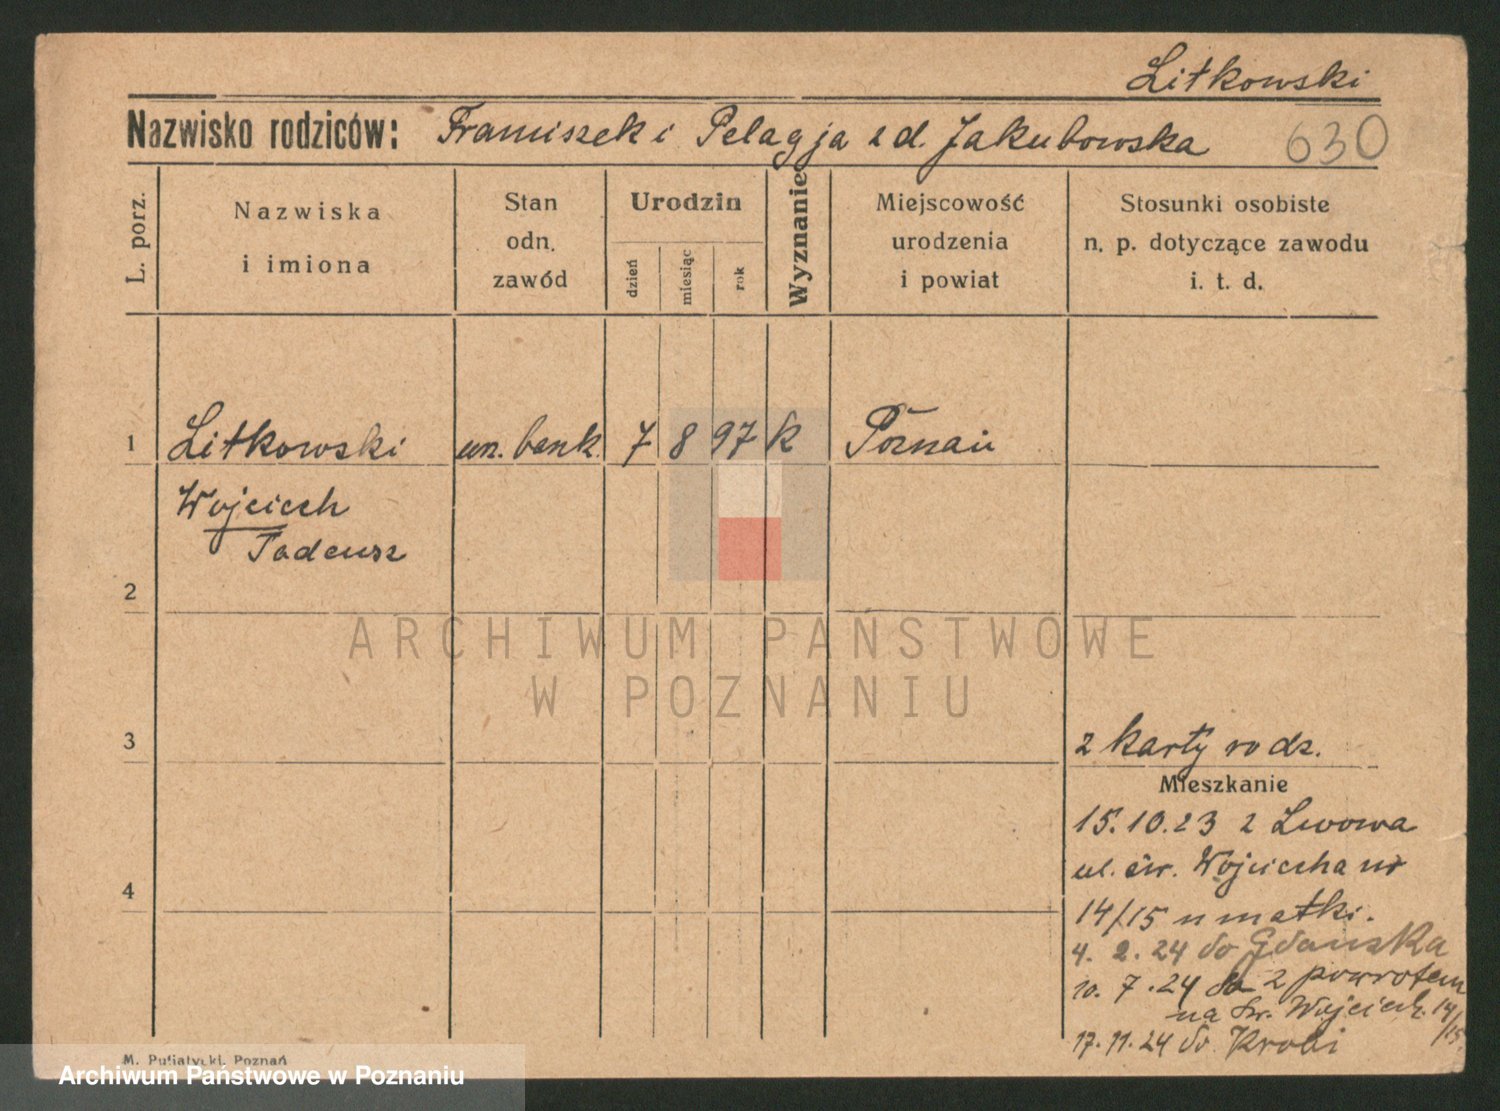 Litkowski
Nazwisko rodziców: Franciszek i Pelagja z d. Jakubowska 630
L. porz.
Nazwiska
i imiona
Stan
odn.
zawód
Urodzin
dzień
miesiąc
rok
Wyznanie
Miejscowość
urodzenia
i powiat
Stosunki osobiste
n. p. dotyczące zawodu
i. t. d.
1 Litkowski urz. bank. 7 8 97 k Poznań
Wojciech
Tadeusz
2
3
4
z karty rodz.
Mieszkanie
15.10.23 z Lwowa
ul. św. Wojciecha nr
14/15 u matki.
4. 2. 24 do Gdańska
10. 7. 24 z powrotem
na św. Wojciech. 14/15.
17. 11. 24 do Krobi
ARCHIWUM PAŃSTWOWE
W POZNANIU
M. Putiatycki, Poznań
Archiwum Państwowe w Poznaniu